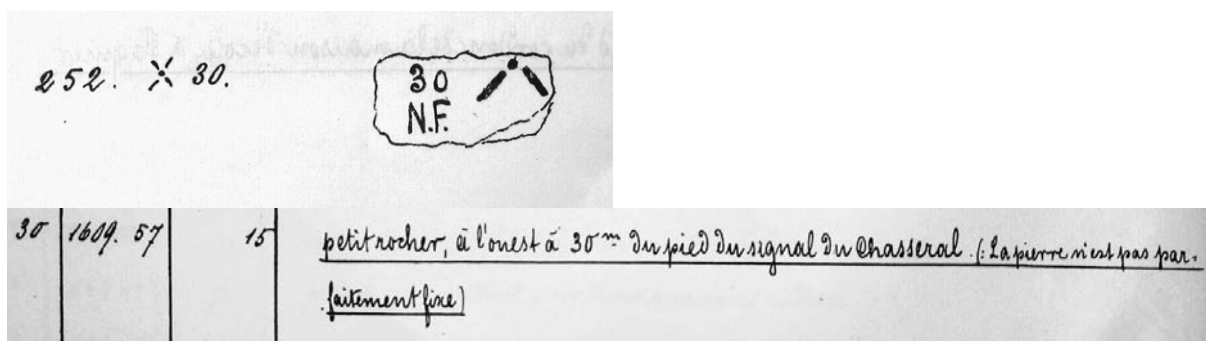 252. 30.
30
N.F.
30 1609.57 15 petit rocher, à l'ouest à 30 m du pied du signal du Chasseral. (: La pierre n'est pas par-
faitement fixe)